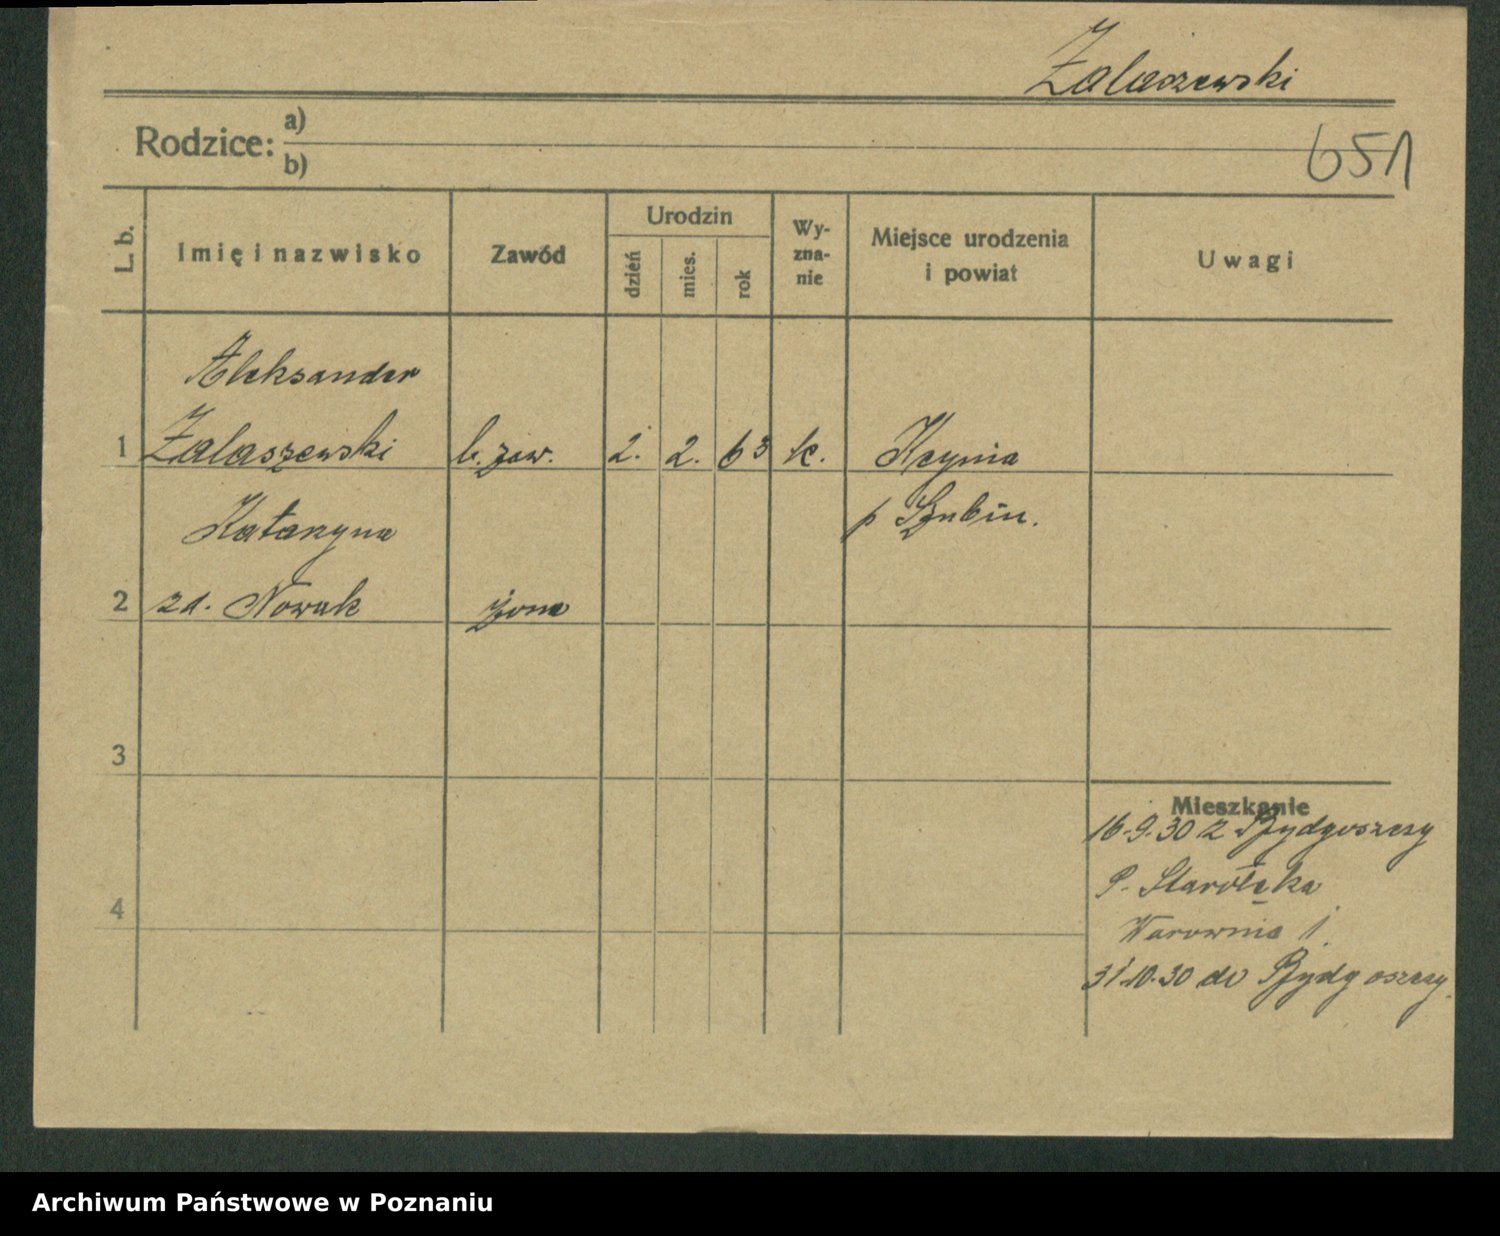 Zalaszewski
Rodzice: a)
b)
651
L. b.
Imię i nazwisko
Zawód
Urodzin
dzień
mies.
rok
Wy-
zna-
nie
Miejsce urodzenia
i powiat
Uwagi
Aleksander
1 Zalaszewski b. zaw. 2. 2. 63 k. Kcynia
p Szubin.
Katarzyna
2 zd. Nowak żona
3
4
Mieszkanie
16.9.30 z Bydgoszczy
P. Starołęka
Warownia 1.
31.10.30 do Bydgoszczy.
Archiwum Państwowe w Poznaniu